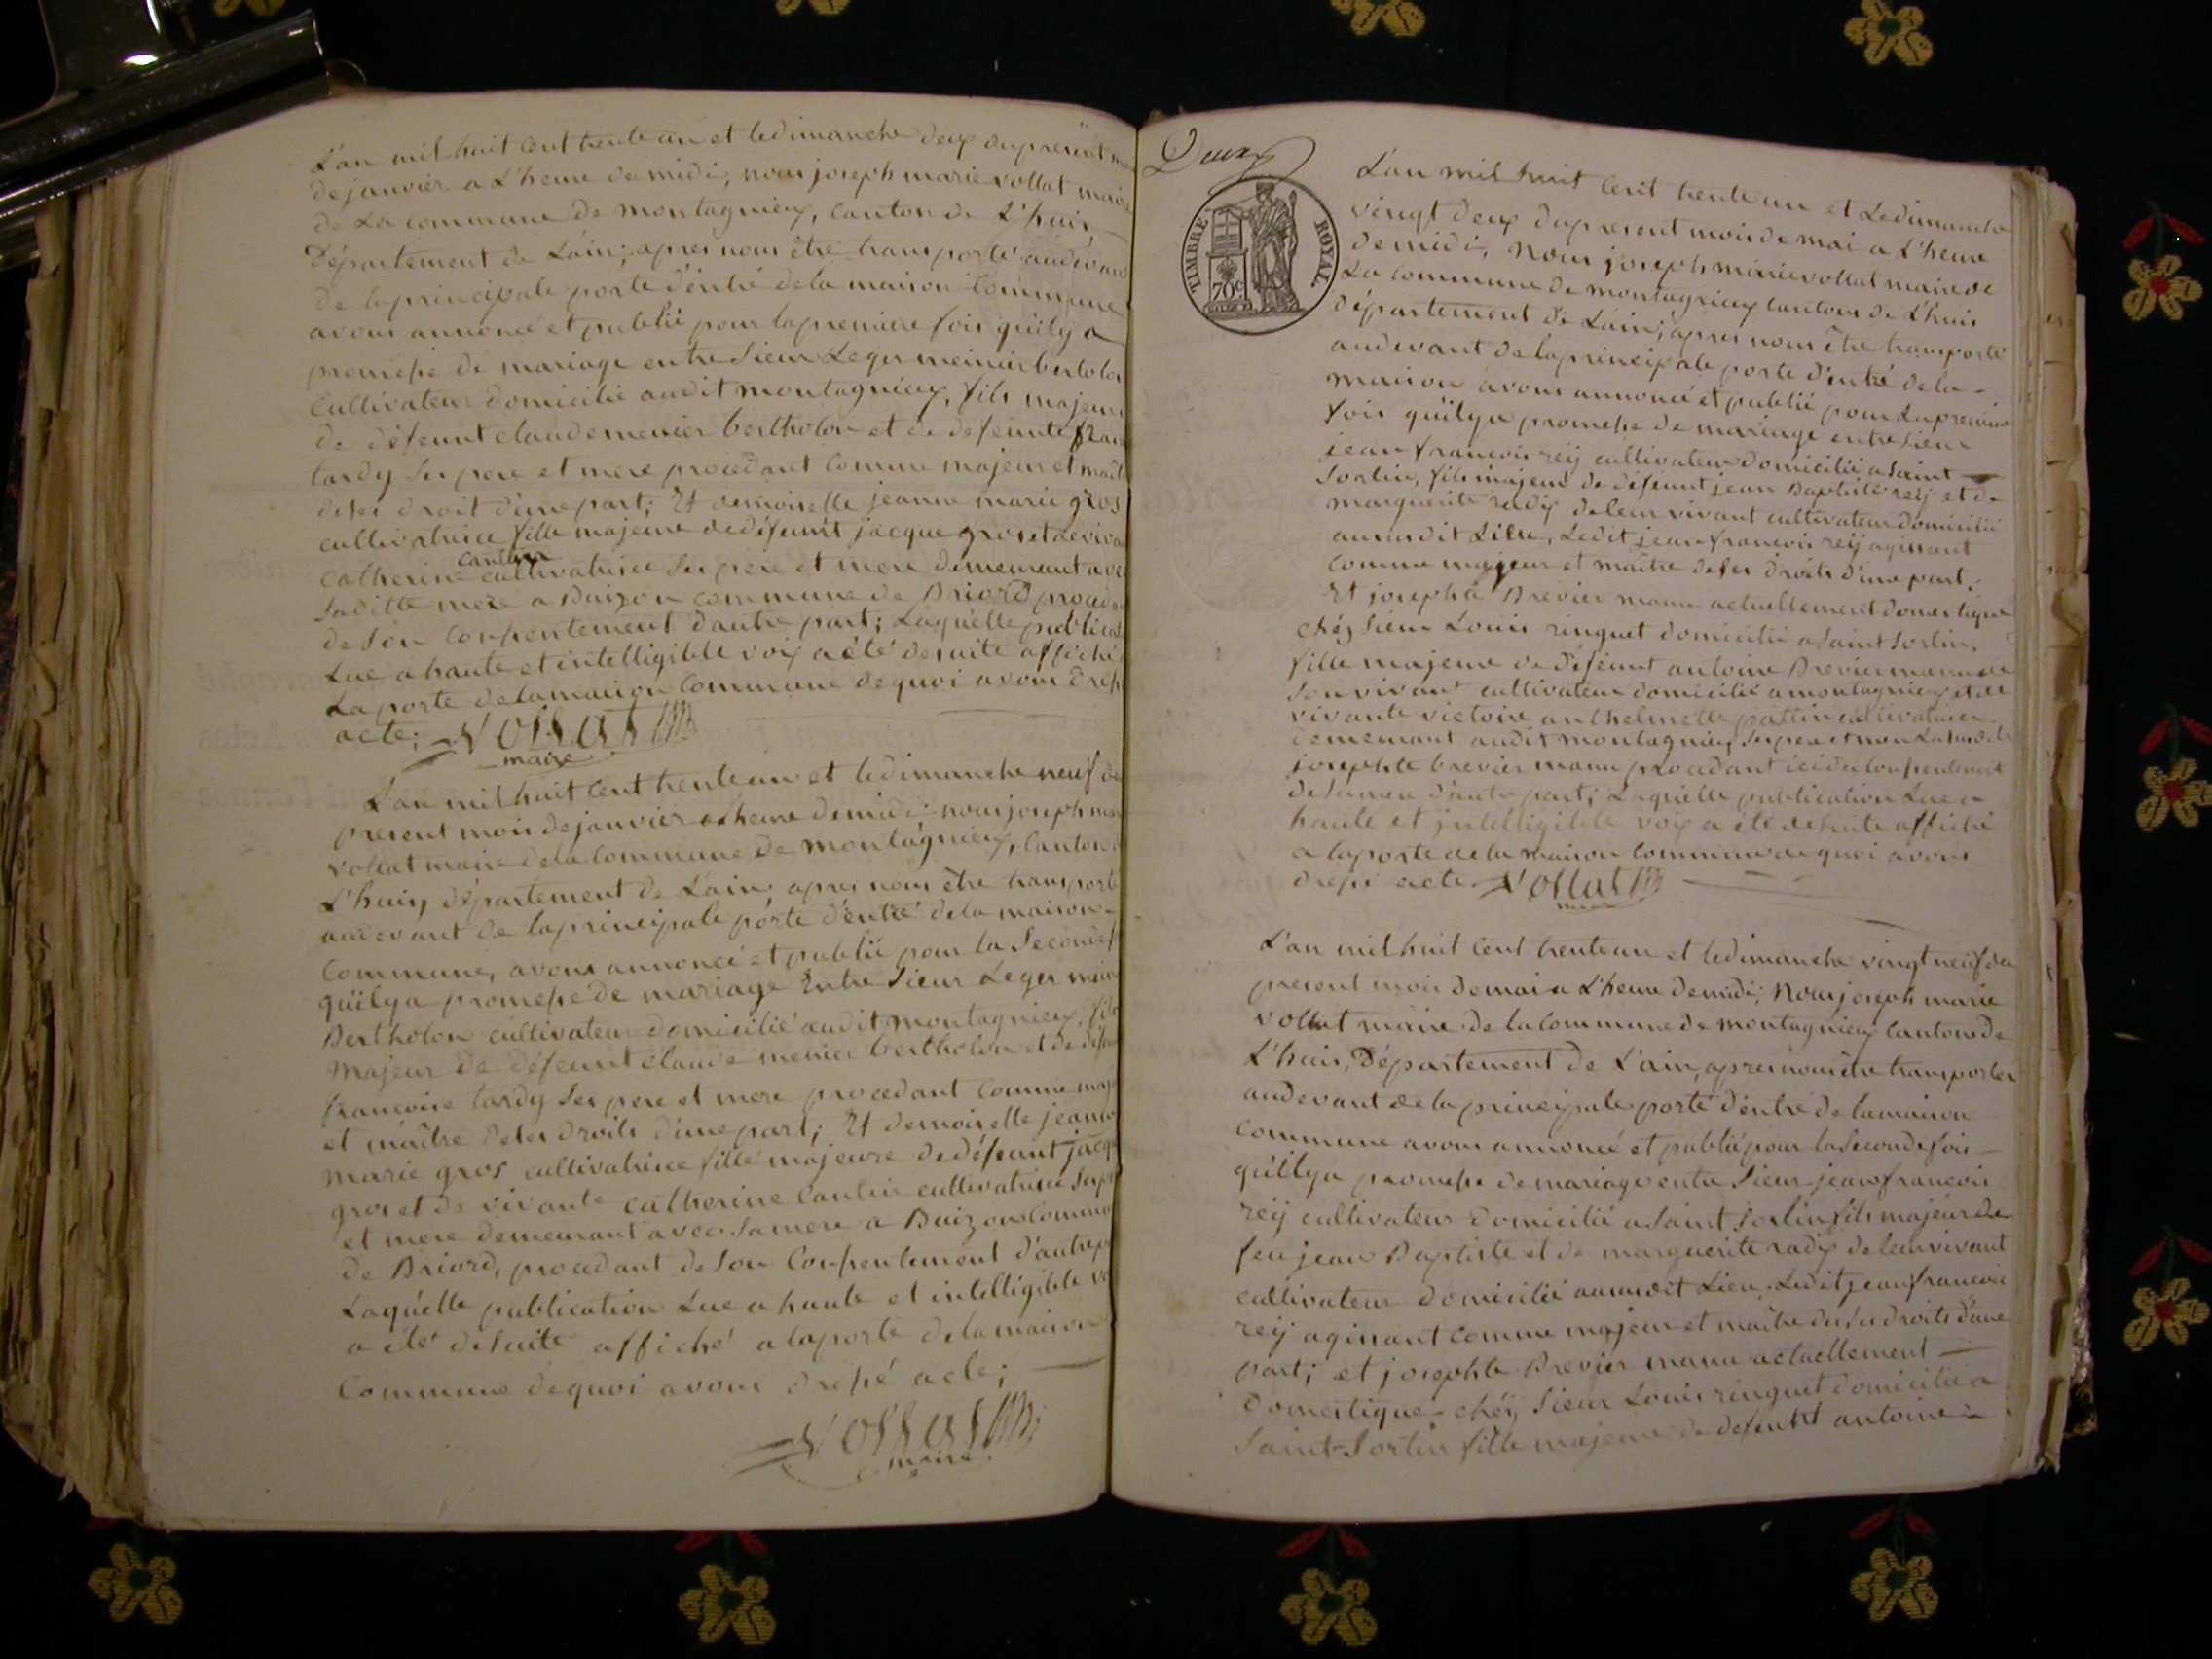 L'an mil huit Cent trente un et le dimanche deux du présent
de janvier a L'heure de midi, nous joseph marie vollat maire
de La commune de montagnieux, canton de L'huis
Département de L'ain; apres nous être transporté audevant
de la principale porte d'entré de la maison Commune
avons annoncé et publié pour la premiere fois qu'il y a
promesse de mariage entre Sieur Leger meinier bertolon
Cultivateur domicilié audit montagnieux, fils majeur
de défeunt claude menier bertholon et de defeunte fran
tardy ses pere et mere procedant Comme majeur et maît
de ses droit d'une part; Et demoiselle jeanne marie gros
cultivatrice fille majeure de défeunt jacque gros et de viva
cantin
catherine cultivatrice ses père et mere demeurant avec
saditte mere a Buizon commune de Briord proceda
de son Consentement d'autre part; Laquelle publicat
Lue a haute et intelligible voix a été desuite affiché
La porte de la maison Commune de quoi avons dressé
acte; Vollat
maire
L'an mil huit Cent trente un et le dimanche neuf du
present mois de janvier a L'heure de midi; nous joseph mar
vollat maire de la Commune de montagnieux, Canton d
L'huis, département de L'ain, apres nous être transporté
audevant de la principale porte d'entré de la maison-
Commune, avons annoncé et publié pour la Seconde f
qu'il y a promesse de mariage Entre Sieur Leger mein
Bertholon cultivateur domicilié audit montagnieux, fils
Majeur de défeunt claude menier bertholon et de défeu
francoise tardy ses pere et mere procedant Comme maje
et maître de ses droits d'une part; Et demoiselle jeanne
marie gros cultivatrice fille majeure de défeunt jacqu
gros et de vivante catherine Cantin cultivatrice ses pe
et mere demeurant avec sa mere a Buizon Commu
de Briord, procedant de son Consentement d'autre p
Laquelle publication Lue a haute et intelligible vo
a été desuite affiché a la porte de la maison
Commune de quoi avons dressé acte;
Vollat
maire
Deux
TIMBRE ROYAL
70c
L'an mil huit Cent trente un et Le dimanche
vingt deux du present mois de mai a L'heure
de midi, Nous joseph marie vollat maire de
La commune de montagnieux canton de L'huis
département de L'ain; apres nous être transporté
audevant de la principale porte d'entré de la -
maison avons annoncé et publié pour La premiere
fois qu'il y a promesse de mariage entre Sieur
jean francois reÿ cultivateur domicilié a Saint
Sorlin, fils majeur de défeunt jean Baptiste reÿ et de
marguerite radix de leur vivant cultivateur domicilié
aususdit Lieu, Ledit jean francois reÿ agissant
Comme majeur et maître de ses droits d'une part;
Et josephte Brevier manu actuellement domestique
chéz Sieur Louis ringuet domicilié a Saint Sorlin,
fille majeure de défeunt antoine Brevier manu de
son vivant cultivateur domicilié a montagnieux et de
vivante victoire anthelmette pattin cultivatrice
demeurant audit montagnieux ses pere et mere La susdite
josephte brevier manu procedant ici du Consentement
de sa mere d'autre part; Laquelle publication Lue a
haute et intelligible voix a été desuite affiché
a la porte de la maison Commune de quoi avons
dressé acte. Vollat
maire
L'an mil huit Cent trente un et le dimanche vingt neuf du
present mois de mai a L'heure de midi; Nous joseph marie
vollat maire de la Commune de montagnieux Canton de
L'huis, Département de L'ain, apres nous être transporter
audevant de la principale porte d'entré de la maison
Commune avons annoncé et publié pour la Seconde fois-
qu'il y a promesse de mariage entre Sieur jean francois
reÿ cultivateur domicilié a Saint Sorlin fils majeur de
feu jean Baptiste et de marguerite radix de leur vivant
cultivateur domicilié aususdit Lieu, Ledit jean francois
reÿ agissant Comme majeur et maître de ses droits d'une
part; et josephte Brevier manu actuellement
Domestique chéz Sieur Louis ringuet domicilié a
Saint-Sorlin fille majeure de defeunt antoine